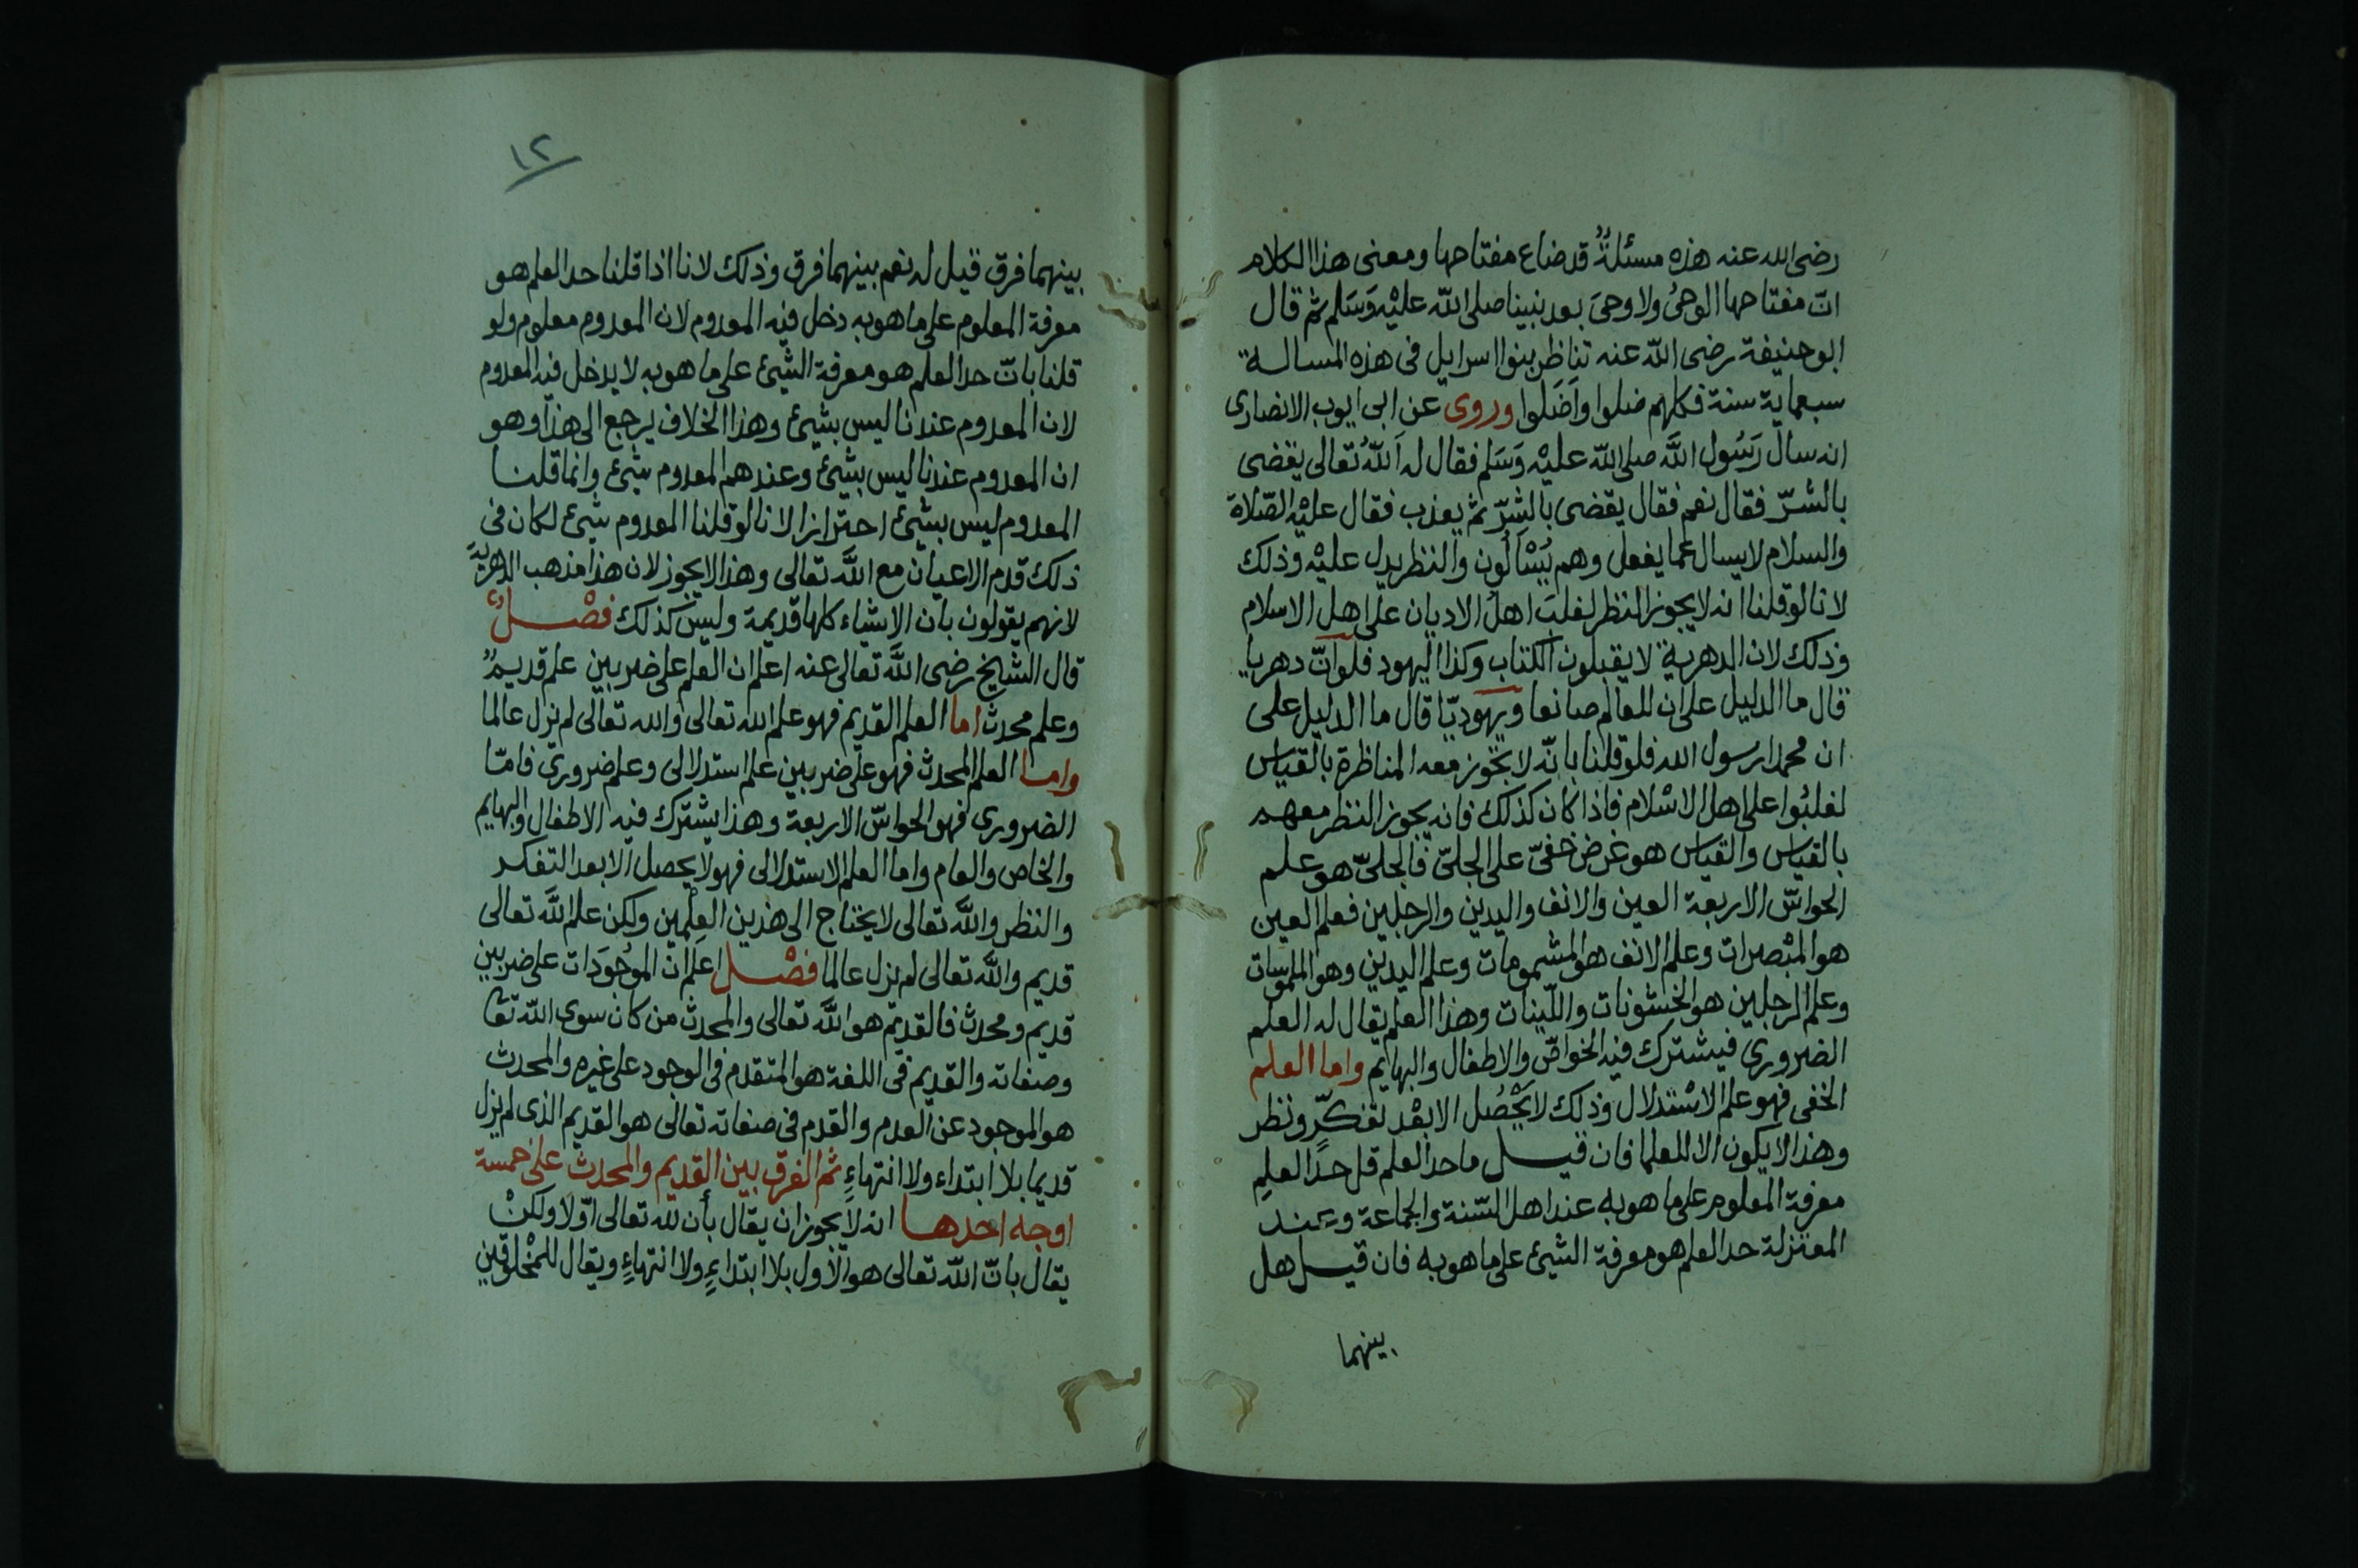 رضى الله عنه هذه مسئلةٌ قد ضاع مفتاحها ومعنى هذا الكلام
انّ مفتاحها الوحىُ ولا وحىَ بعد نبينا صلى الله عليْه وَسَلم ثم قال
ابو حنيفة رضى الله عنه تناظر بنوا اسرايل فى هذه المسالة
سبعماية سنة فكلهم ضلوا وَاَضَلوا وروى عن ابى ايوب الانصارى
انه سال رَسُول اللَّه صلى الله عليْه وَسَلم فقال له اَللّهُ تعالى يقضى
بالشرّ فقال نعم فقال يقضى بالشّرّ ثم يعذب فقال عليْه الصّلاة
والسلام لا يسال عما يفعل وهم يُسْاَلُون والنظر يدل عليْه وذلك
لانا لو قلنا انه لا يجوز النظر لغلبَ اهلُ الاديان على اهل الاسلام
وذلك لان الدهرية لا يقبلون الكتاب وكذا اليهود فلو انّ دهريا
قال ما الدليل على ان للعالم صانعا ويهوديّا قال ما الدليل على
ان محمدا رسول الله فلو قلنا بانّه لا تجوز معه المناظرة بالقياس
لغلبُوا على اهل الاسْلام فاذا كان كذلك فانه يجوز النظر معهم
بالقياس والقياس هو عرض خفىّ على الجلىّ فالجلىّ هو علم
الحواسّ الاربعة العين والانف واليدين والرجلين فعلم العين
هو المبْصرات وعلم الانف هو المشمومات وعلم اليدين وهو الملموسات
وعلم الرجلين هو الخشونات واللّينات وهذا العلم يقال له العلم
الضرورى فيشترك فيه الخواصّ والاطفال والبهايم واما العلم
الخفى فهو علم الاسْتدلال وذلك لا يَحْصُل الا بعْد تفكّرٍ ونظر
وهذا لا يكون الا للعلما فان قيل ما حد العلم قل حدّ العلمِ
معرفة المعلوم على ما هو به عند اهل السّنة والجماعة وعند
المعتزلة حد العلم هو معرفة الشيئ على ما هو به فان قيل هل
بينهما
١٢
بينهما فرق قيل له نعم بينهما فرق وذلك لانا اذا قلنا حد العلم هو
معرفة المعلوم على ما هو به دخل فيه المعدوم لان المعدوم معلوم ولو
قلنا بانّ حد العلم هو معرفة الشيئ على ما هو به لا يدخل فيه المعدوم
لان المعدوم عندنا ليس بشيئ وهذا الخلاف يرجع الى هذا وهو
ان المعدوم عندنا ليس بشيئ وعندهم المعدوم شيئ وانما قلنا
المعدوم ليس بشيئ احترازا لانا لو قلنا المعدوم شيئ لكان فى
ذلك قدم الاعيان مع اللَّه تعالى وهذا لا يجوز لان هذا مذهب الدهريّة
لانهم يقولون بان الاشياء كلها قديمة وليسَ كذلك فصْلٌ
قال الشايخ رضى اللَّه تعالى عنه اعلم ان العلم على ضربين علم قديمٌ
وعلم محدث اما العلم القديم فهو علم الله تعالى والله تعالى لم يزل عالما
واما العلم المحدث فهو على ضربين علم استدلالى وعلم ضرورىّ فامّا
الضرورى فهو الحواسّ الاربعة وهذا يشترك فيه الاطفال والبهايم
والخاص والعام واما العلم الاستدلالى فهو لا يحصل الا بعد التفكر
والنظر واللَّه تعالى لا يحتاج الى هذين العِلْمين ولكن علم اللَّه تعالى
قديم واللَّه تعالى لم يزل عالما فصْل اعلم ان الموجُودَات على ضربين
قديم ومحدث فالقديم هو اللَّه تعالى والمحدث من كان سوى الله تعا
وصفاته والقديم فى اللغة هو المتقدم فى الوجود على غيره والمحدث
هو الموجود عن العدم والقدم فى صفاته تعالى هو القديم الذى لم يزل
قديما بلا ابتداء ولا انتهاءٍ ثم الفرق بين القديم والمحدث على خمسة
اوجه احدها انه لا يجوز ان يقال بأن لله تعالى اوّلا ولكنْ
يقال بانّ اللّه تعالى هو الاول بلا ابتداءٍ ولا انتهاءٍ ويقال للمخْلوقين